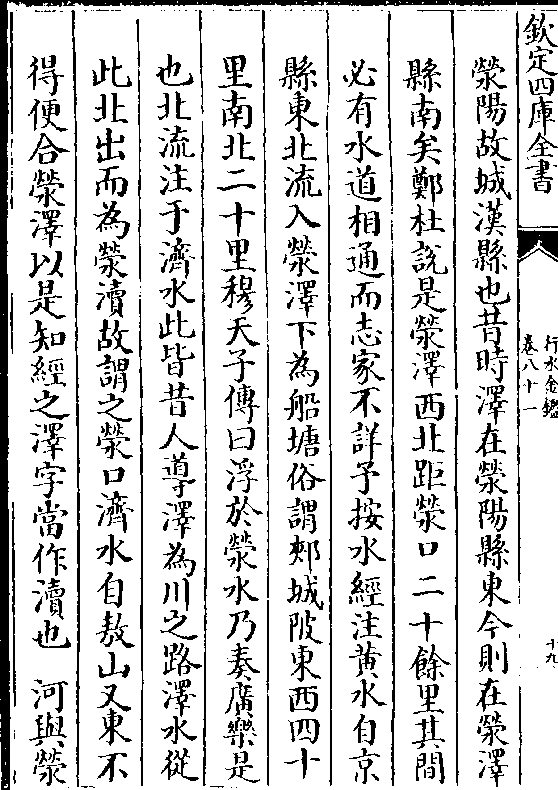 欽定四庫全書
行水金鑑
卷八十一
十九
滎陽故城漢縣也昔時澤在滎陽縣東今則在滎澤
縣南矣鄭杜說是滎澤西北距滎口二十餘里其間
必有水道相通而志家不詳予按水經注黃水自京
縣東北流入滎澤下為船塘俗謂郟城陂東西四十
里南北二十里穆天子傳曰浮於滎水乃奏廣樂是
也北流注于濟水此皆昔人導澤為川之路澤水從
此北出而為滎瀆故謂之滎口濟水自敖山又東不
得便合滎澤以是知經之澤字當作瀆也 河與滎